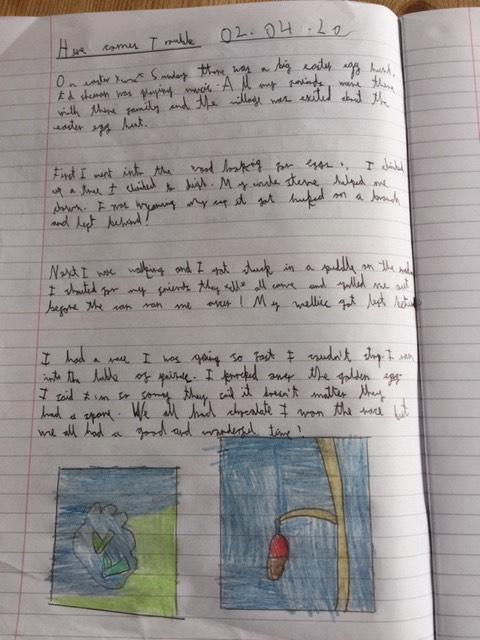 Here comes Trouble 02.04.20
On easter Sunday there was a big easter egg hunt.
Ed sheeran was playing music. All my friends were there
with there family and the village was exited about the
easter egg hunt.
First I went into the wood looking for eggs. I climbed
up a tree I climbed to high. My uncle steve helped me
down. I was wearing my cap it got hooked on a branch
and left behind!
Next I was walking and I got stuck in a puddle on the
I shouted for my friends they all came and pulled me out
before the van ran me over! My wellies got left behind
I had a race I was going so fast I couldn't stop. I ran
into the table of prizes. I knocked over the golden egg
I said I'm so sorry they said it doesn't matter they
had a spare. We all had chocolate I won the race but
we all had a good and wonderful time!